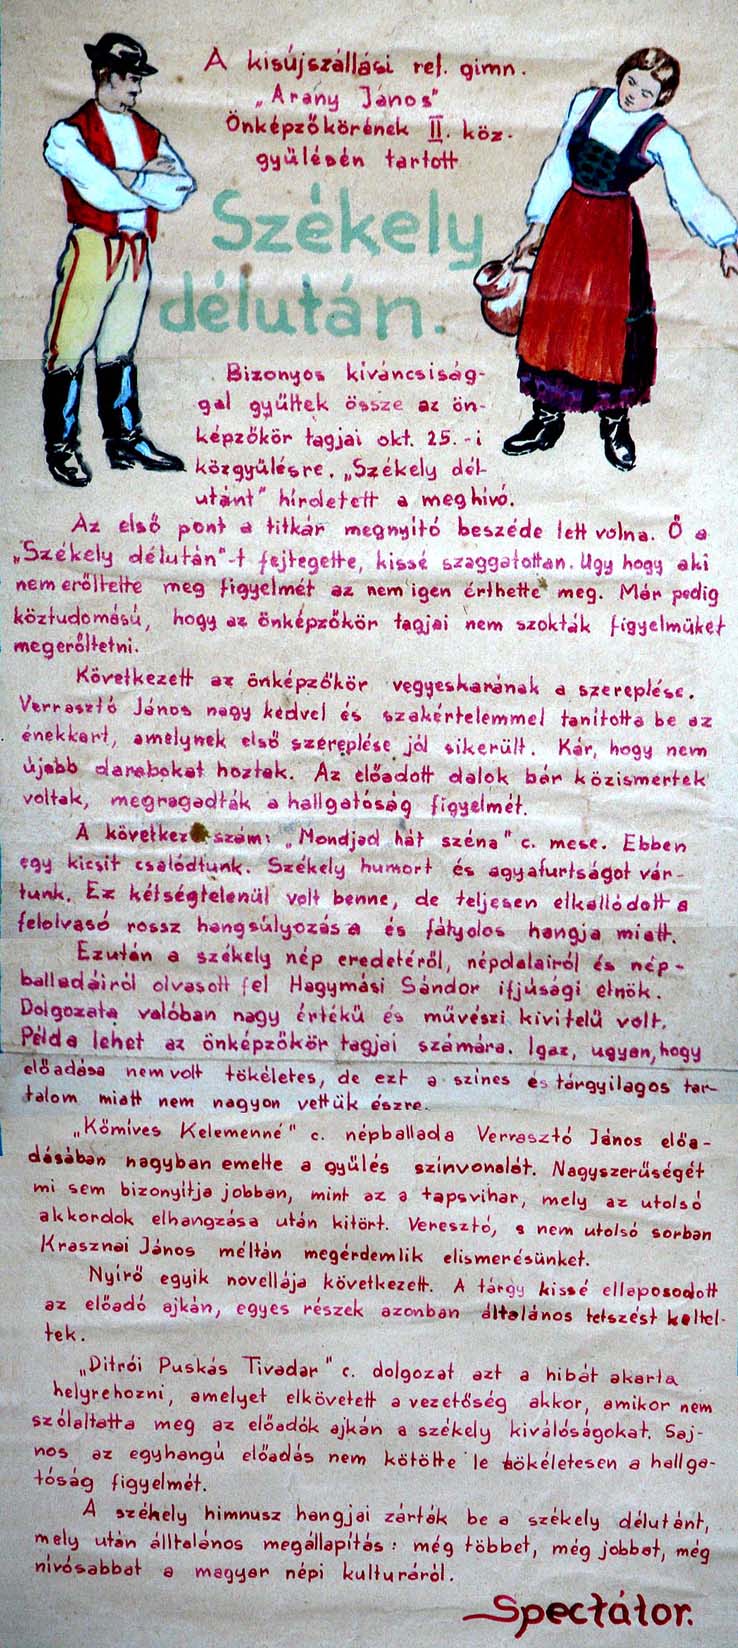 A kisújszállási ref. gimn.
„Arany János"
Önképzőkörének II. köz-
gyűlésén tartott
Székely
délután.
Bizonyos kiváncsiság-
gal gyűltek össze az ön-
képzőkör tagjai okt. 25.-i
közgyűlésre. „Székely dél-
utánt" hírdetett a meghívó.
Az első pont a titkár megnyitó beszéde lett volna. Ő a
„Székely délután"-t fejtegette, kissé szaggatottan. Úgy hogy aki
nem erőltette meg figyelmét az nem igen érthette meg. Már pedig
köztudomású, hogy az önképzőkör tagjai nem szokták figyelmüket
megerőltetni.
Következett az önképzőkör vegyeskarának a szereplése.
Verrasztó János nagy kedvel és szakértelemmel tanította be az
énekkart, amelynek első szereplése jól sikerült. Kár, hogy nem
újabb darabokat hoztak. Az előadott dalok bár közismertek
voltak, megragadták a hallgatóság figyelmét.
A következ szám: „Mondjad hát széna" c. mese. Ebben
egy kicsit csalódtunk. Székely humort és agyafurtságot vár-
tunk. Ez kétségtelenül volt benne, de teljesen elkallódott a
felolvasó rossz hangsúlyozása és fátyolos hangja miatt.
Ezután a székely nép eredetéről, népdalairól és nép-
balladáiról olvasott fel Hagymási Sándor ifjúsági elnök.
Dolgozata valóban nagy értékű és művészi kivitelű volt.
Példa lehet az önképzőkör tagjai számára. Igaz, ugyan, hogy
előadása nem volt tökéletes, de ezt a színes és tárgyilagos tar-
talom miatt nem nagyon vettük észre.
„Kőmíves Kelemenné" c. népballada Verrasztó János előa-
dásában nagyban emelte a gyűlés színvonalát. Nagyszerűségét
mi sem bizonyítja jobban, mint az a tapsvihar, mely az utolsó
akkordok elhangzása után kitört. Veresztó, s nem utolsó sorban
Krasznai János méltán megérdemlik elismerésünket.
Nyírő egyik novellája következett. A tárgy kissé ellaposodott
az előadó ajkán, egyes részek azonban általános tetszést keltet-
tek.
„Ditrói Puskás Tivadar" c. dolgozat azt a hibát akarta
helyrehozni, amelyet elkövetett a vezetőség akkor, amikor nem
szólaltatta meg az előadók ajkán a székely kiválóságokat. Saj-
nos, az egyhangú előadás nem kötötte le tökéletesen a hallga-
tóság figyelmét.
A székely himnusz hangjai zárták be a székely délutánt,
mely után álltalános megállapítás: még többet, még jobbat, még
nívósabbat a magyar népi kulturáról.
Spectátor.